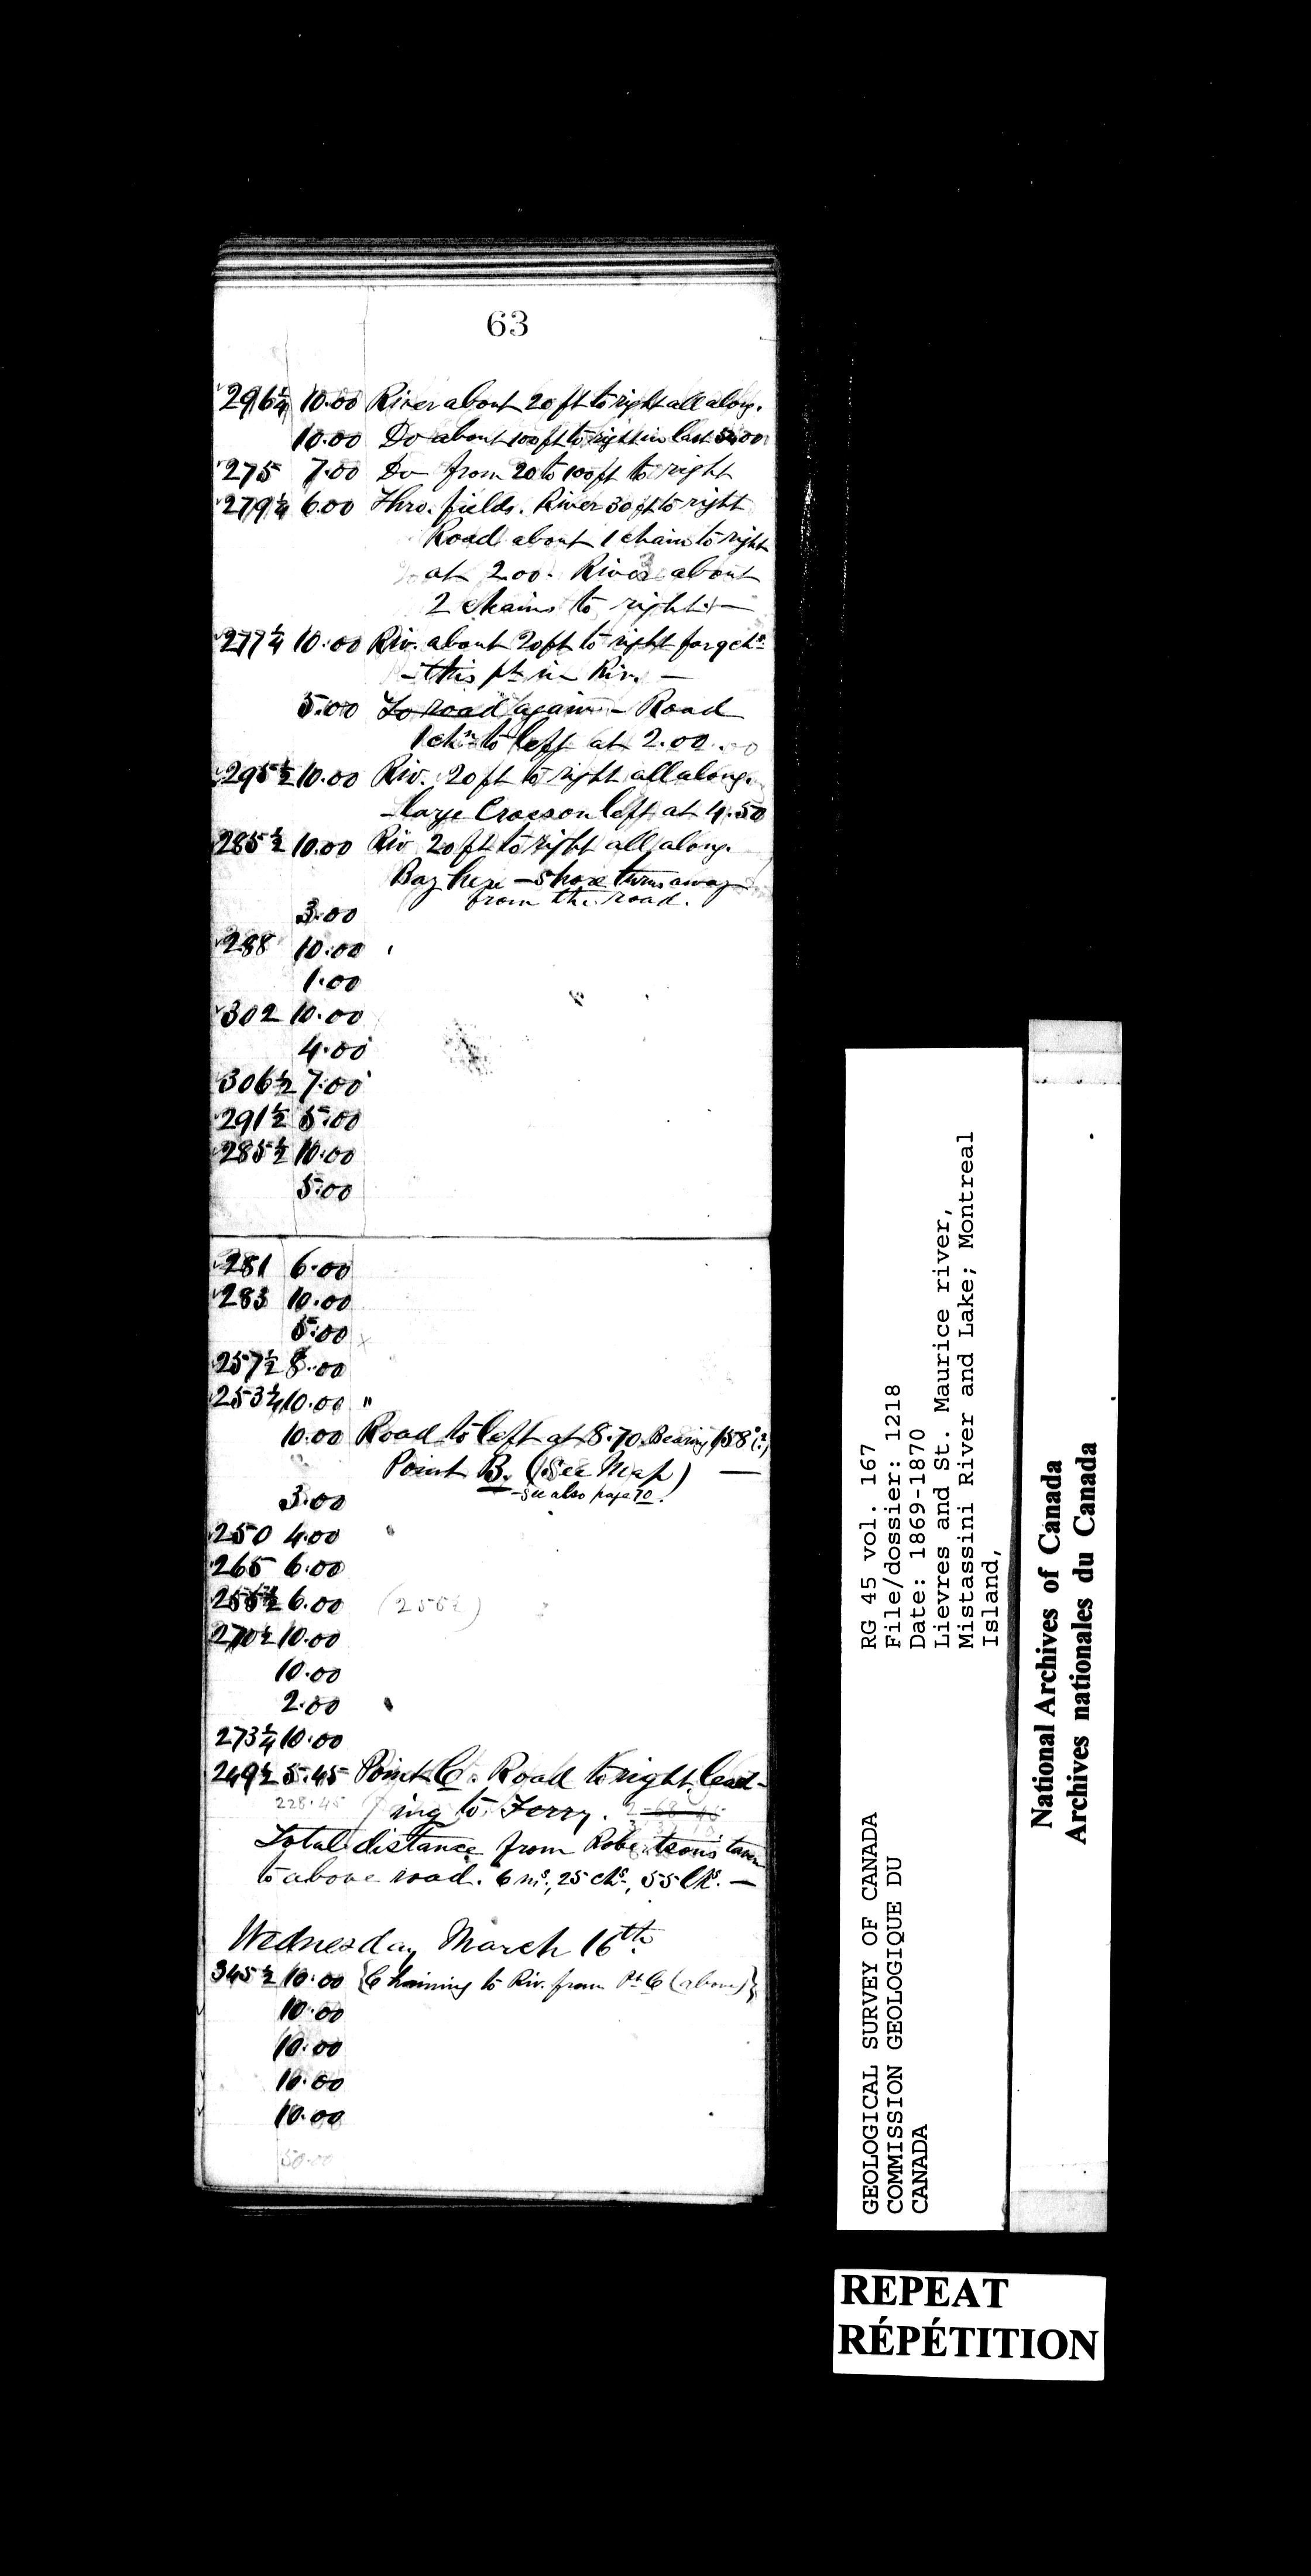 63
296¼ 10.00 River about 20 ft to right all along.
10.00 Do about 100 ft to right in last 5.00
275 7.00 Do from 20 to 100 ft to right
279¼ 6.00 Thro. fields. River 30 ft to right
Road about 1 chain to right
at 2.00. River about
2 chains to right. —
277¼ 10.00 Riv. about 20 ft to right for 9 chs
— this pt in Riv. —
5.00 To road again — Road
1 chn to left at 2.00
295½ 10.00 Riv. 20 ft to right all along.
— Large Cross on left at 4.50
285½ 10.00 Riv 20 ft to right all along.
Bay here — shore turns away
from the road.
3.00
288 10.00
1.00
302 10.00
4.00
306½ 7.00
291½ 5.00
285½ 10.00
5.00
281 6.00
283 10.00
5.00 x
257½ 8.00
253¼ 10.00 "
10.00 Road to left at 8.70. Bearing 158° (?)
Point B. (See Map) —
— see also page 70.
3.00
250 4.00
265 6.00
255½ 6.00 (255½)
270½ 10.00
10.00
2.00
273¼ 10.00
249½ 5.45 Point C. Road to right lead-
228.45 ing to Ferry.
Total distance from Robertson's tavern
to above road. 6 ms., 25 chs., 55 lks. —
Wednesday March 16th.
345½ 10.00 {Chaining to Riv. from Pt C (above)}
10.00
10.00
10.00
10.00
50.00
GEOLOGICAL SURVEY OF CANADA
COMMISSION GEOLOGIQUE DU
CANADA
RG 45 vol. 167
File/dossier: 1218
Date: 1869-1870
Lievres and St. Maurice river,
Mistassini River and Lake; Montreal
Island,
National Archives of Canada
Archives nationales du Canada
REPEAT
RÉPÉTITION